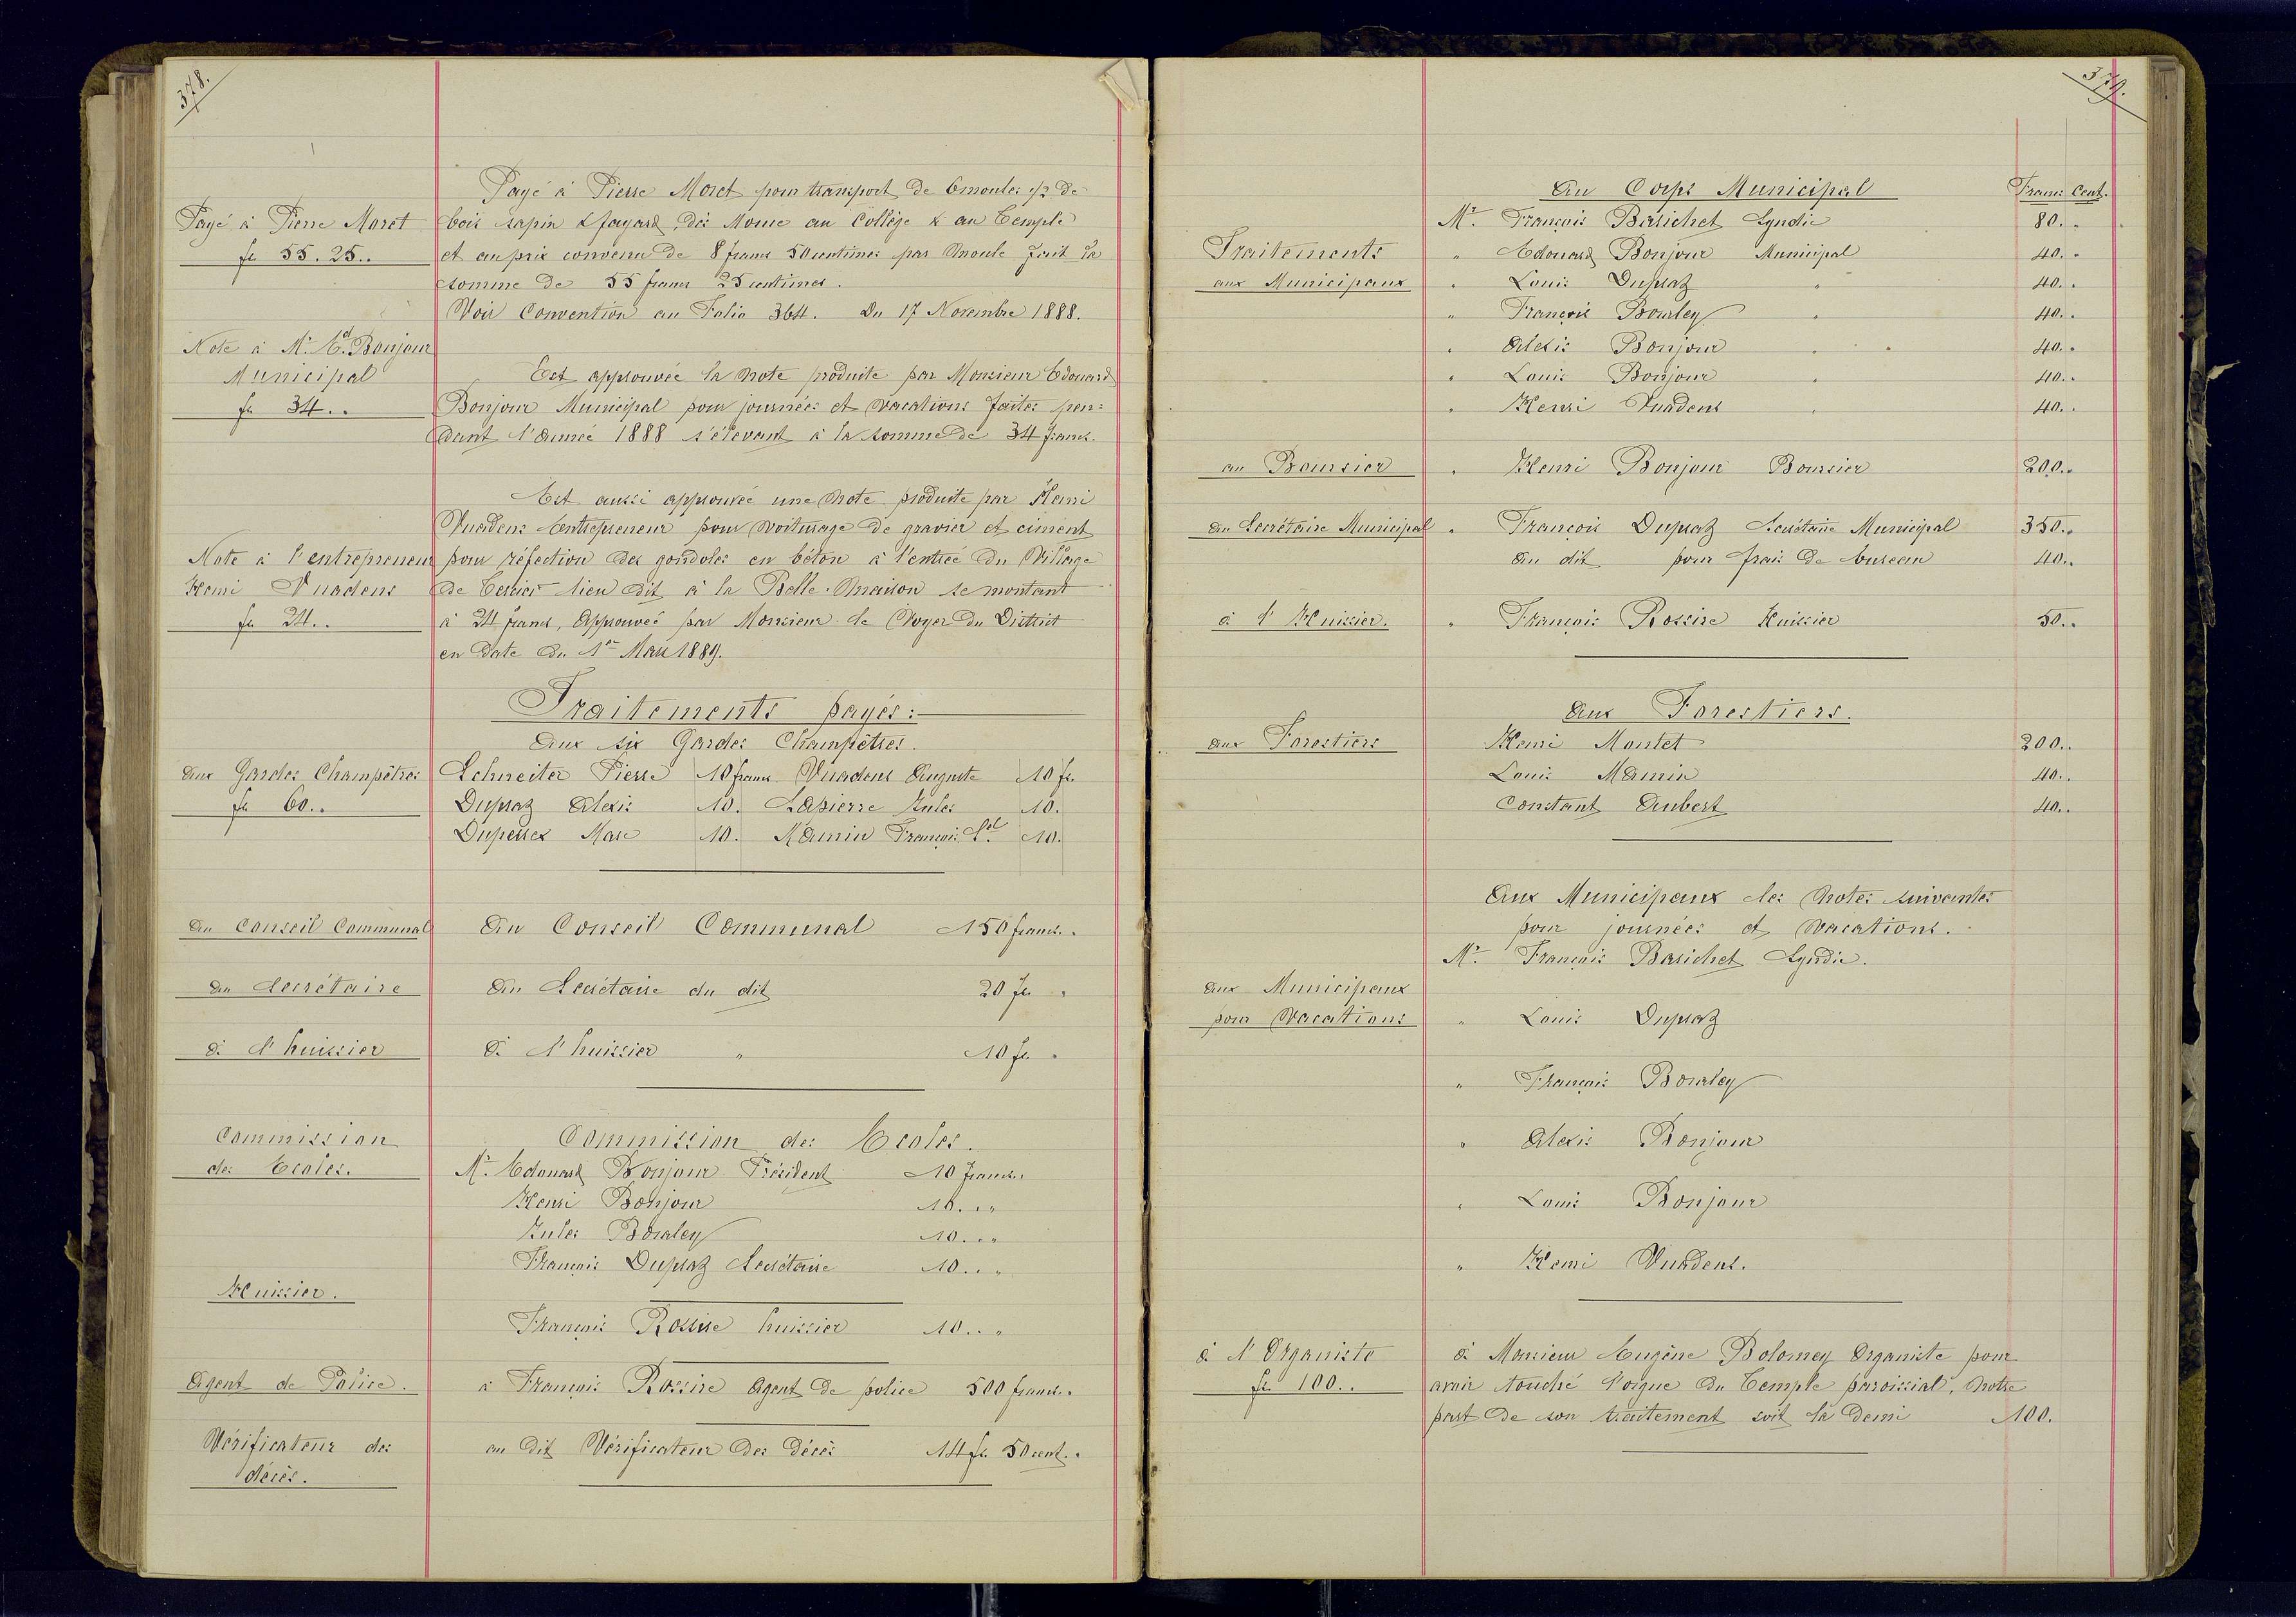 378.
Payé à Pierre Moret pour transport de 6 moules 1/2 de
Payé à Pierre Moret
fr 55.25..
bois sapin & fayard, dès Mome au Collège & au Temple
et au prix convenu de 8 francs 50 centimes par Moule fait la
somme de 55 francs 25 centimes.
Voir Convention au Folio 364. Du 17 Novembre 1888.
Note à Mr. Ed. Bonjour
Municipal
fr 34..
Est approuvée la Note produite par Monsieur Edouard
Bonjour Municipal pour journées et Vacations faites pen=
dant l'année 1888 s'élevant à la somme de 34 francs.
Est aussi approuvée une Note produite par Henri
Vuadens Entrepreneur pour voiturage de gravier et ciment
Note à l'entrepreneur
Henri Vuadens
fr 24..
pour réfection des gondoles en béton à l'entrée du Village
de Territet lieu dit à la Belle-Maison se montant
à 24 francs, Approuvée par Monsieur le Voyer du District
en date du 1er Mai 1889.
Traitements payés:
Aux six Gardes Champêtres.
aux Gardes Champêtres
fr 60..
Schneiter Pierre 10 francs Vuadens Auguste 10 fr.
Dupraz Alexis 10. Lapierre Jules 10.
Duperrex Marc 10. Mamin François 10.
Au Conseil Communal
Au Conseil Communal 150 francs..
Au Secrétaire
Au Secrétaire du dit 20 fr "
à l'huissier
à l'huissier " 10 fr "
Commission
des Ecoles.
Commission des Ecoles.
Mr. Edouard Bonjour Président 10 francs..
Henri Bonjour 10..."
Jules Bourley 10..."
François Dupraz Secrétaire 10.. "
Huissier.
François Rossire huissier 10.. "
Agent de Police.
à François Rossire Agent de police 500 francs..
Vérificateur des
décès.
au dit Vérificateur des décès 14 fr. 50 cent..
379.
Au Corps Municipal Francs Cent.
Mr. François Barichet Syndic 80. "
Traitements
aux Municipaux
" Edouard Bonjour Municipal 40. "
" Louis Dupraz " 40. "
" François Bourley " 40. "
" Alexis Bonjour " 40. "
" Louis Bonjour " 40. "
" Henri Vuadens " 40. "
au Boursier
" Henri Bonjour Boursier 200..
Au Secrétaire Municipal
" François Dupraz Secrétaire Municipal 350..
Au dit pour frais de bureau 40..
à l'Huissier.
" François Rossire Huissier 50..
Aux Forestiers.
aux Forestiers
Henri Montet 200..
Louis Mamin 40..
Constant Aubert 40..
Aux Municipaux les Notes suivantes
pour journées et Vacations.
Mr. François Barichet Syndic.
aux Municipaux
pour Vacations
" Louis Dupraz
" François Bourley
" Alexis Bonjour
" Louis Bonjour
" Henri Vuadens.
à l'Organiste
fr. 100..
à Monsieur Eugène Bolomey Organiste pour
avoir touché l'orgue du Temple paroissial, Notre
part de son traitement soit la demi 100.